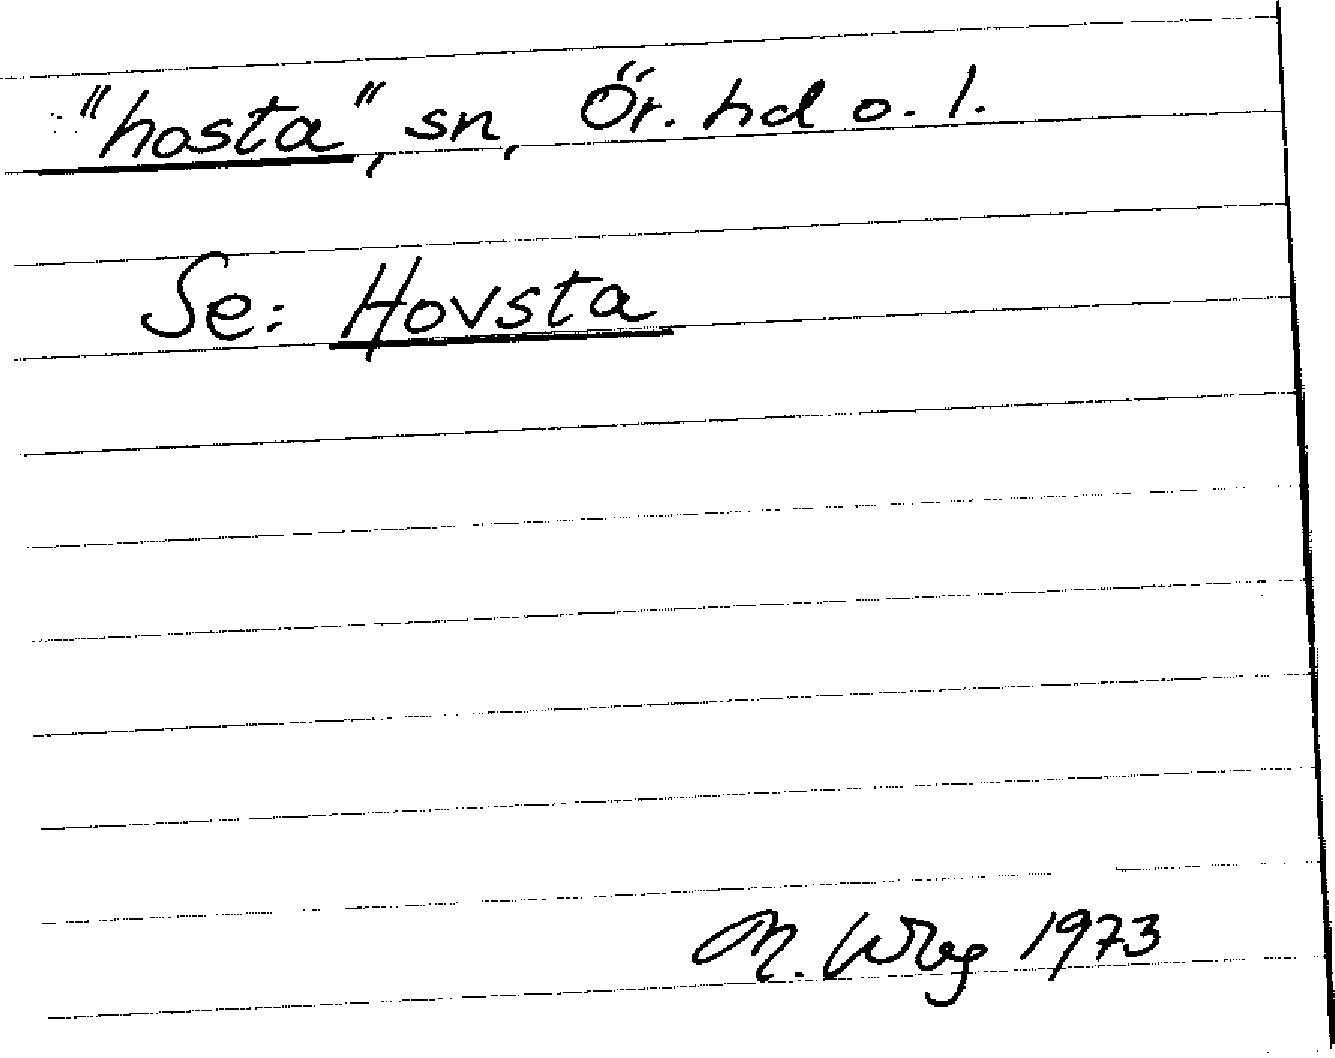 "hosta", sn, Ör. hd o. l.
Se: Hovsta
1973